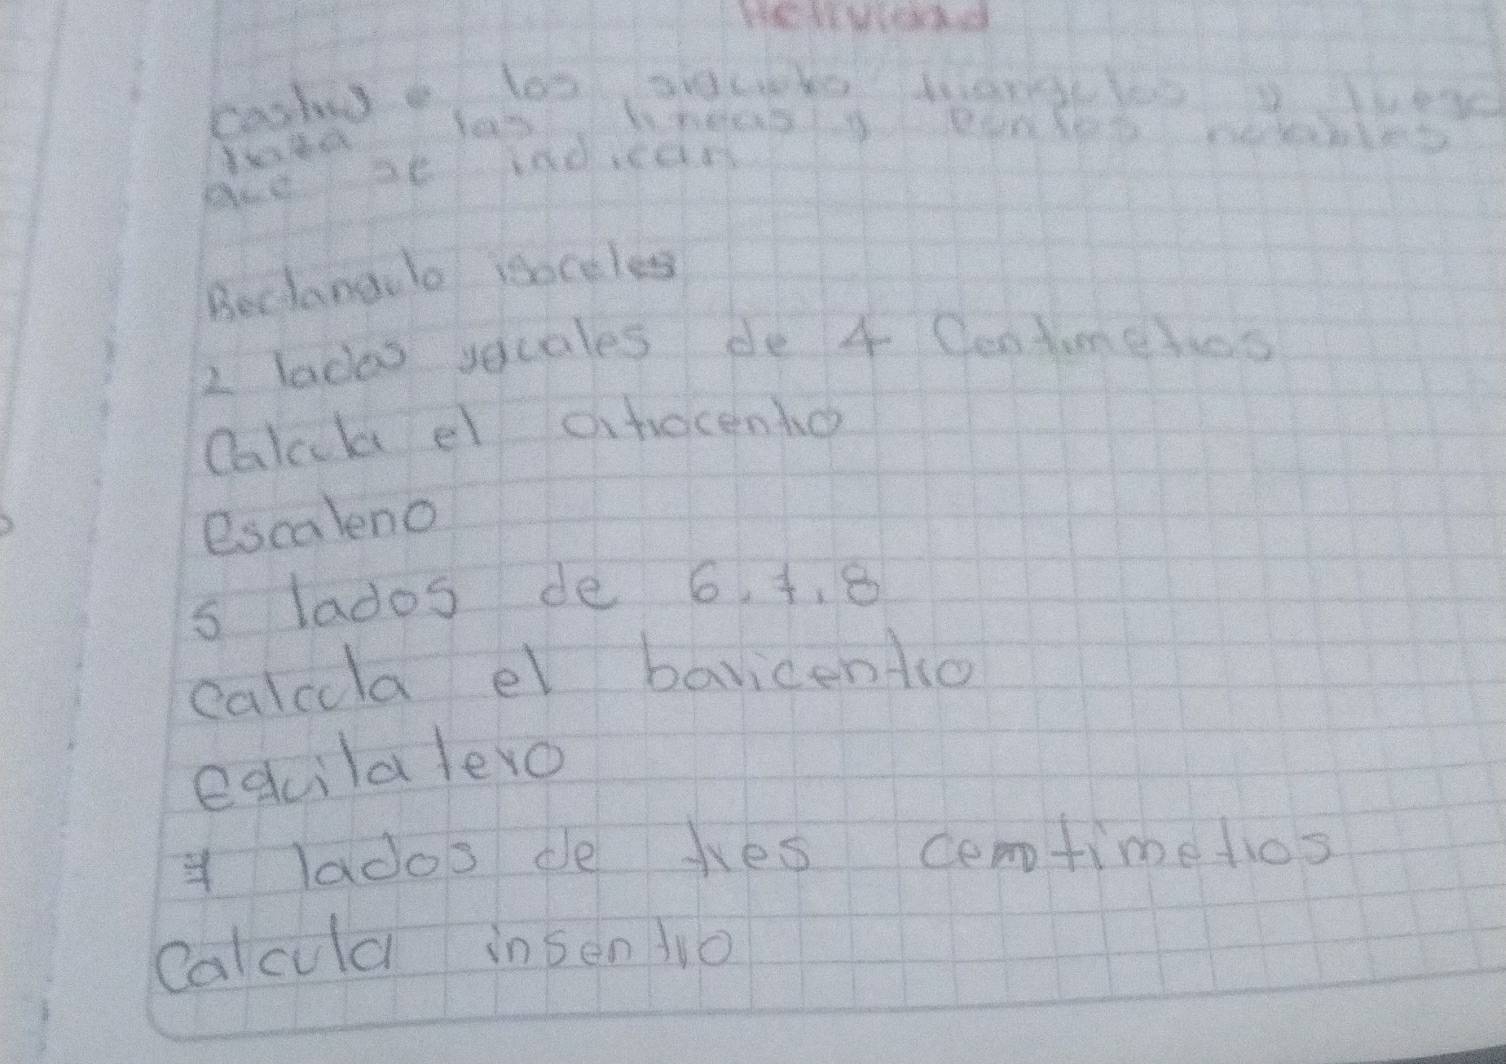 Actividad
los triangulos y luego
las lineas y puntos notables
que se indican
Rectangulo isoceles
2 lados yguales de 4 Centimetros
Calcula el ortocentro
escaleno
s lados de 6, 7, 8
calcula el baricentro
equilatero
lados de tres centimetros
Calcula insentro